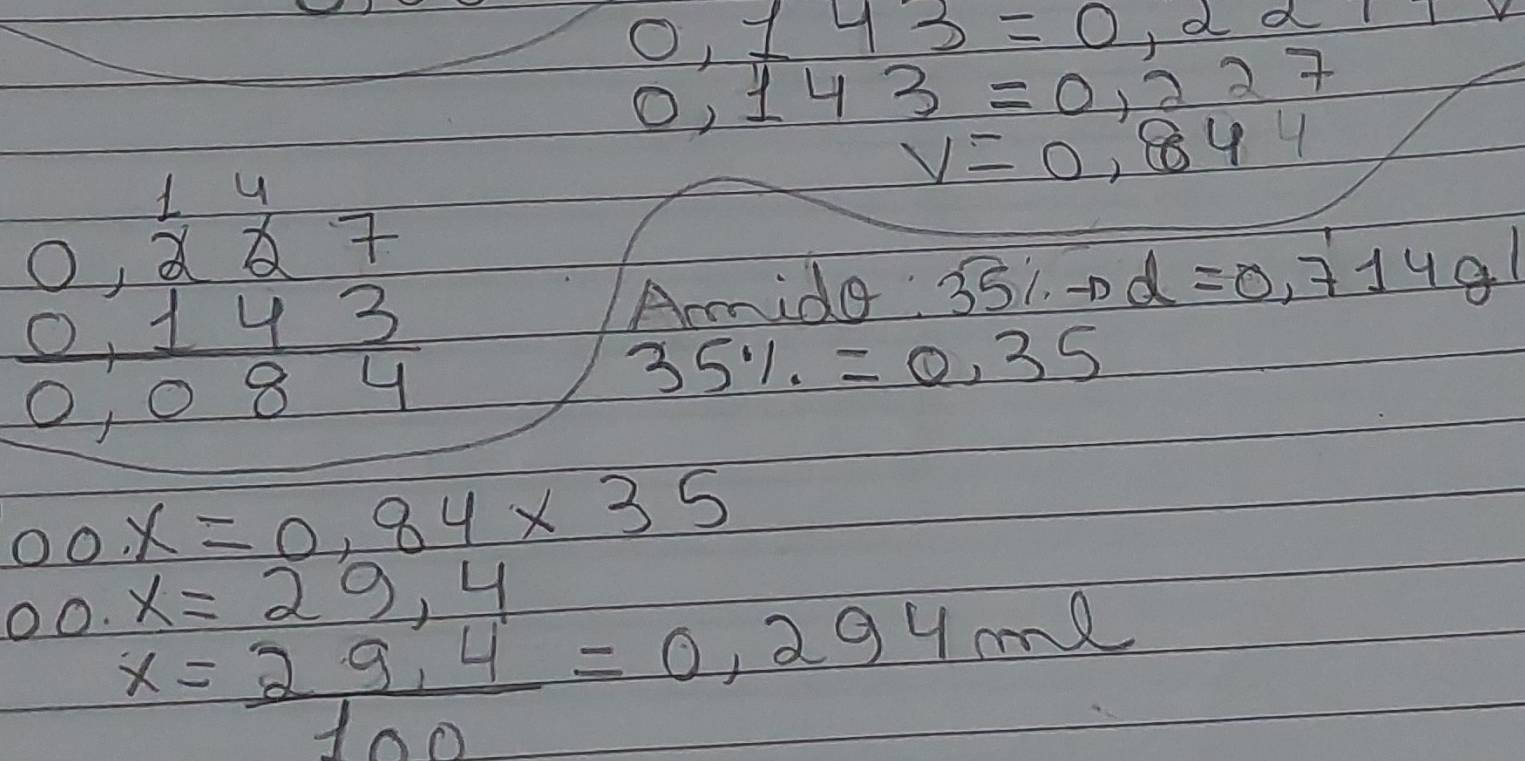 0,143=0,22
0,143=0,227
V=0,844
1 4
0,227
0,143
0,084
Amido: 35%→d=0,714g/
35%=0,35
00.x=0,84x35
00.x=29,4
x=29,4/100=0,294ml